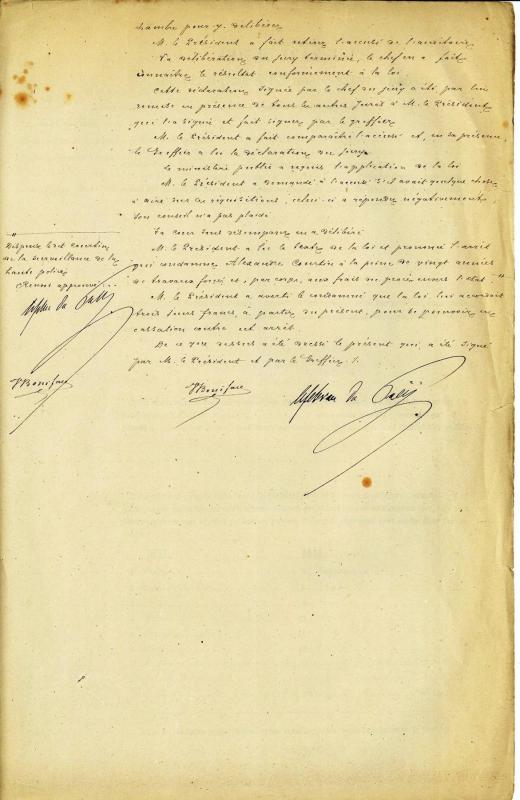 chambre pour y délibérer
M. le Président a fait retirer l'accusé de l'auditoire
La délibération du Jury terminée, le chef en a fait
connaître le résultat conformément à la loi
Cette déclaration signée par le chef du Jury a été par lui
remise en présence de tous les autres Jurés à M. le Président
qui l'a signée et fait signer par le greffier
M. le Président a fait comparaître l'accusé et, en sa présence
le Greffier a lu la déclaration du Jury
Le ministère public a requis l'application de la loi
M. le Président a demandé à l'accusé s'il avait quelque chose
à dire sur ces réquisitions; celui-ci a répondu négativement,
son conseil n'a pas plaidé
La cour sans désemparer en a délibéré
M. le Président a lu le texte de la loi et prononcé l'arrêt
qui condamne Alexandre Courtin à la peine de vingt années
de travaux forcés et, par corps, aux frais du procès envers l'état "
M. le Président a averti le condamné que la loi lui accordait
trois jours francs, à partir du présent, pour se pourvoir en
cassation contre cet arrêt.
De ce que dessus a été dressé le présent qui a été signé
par M. le Président et par le Greffier ./.
" Dispense ledit Courtin
de la surveillance de la
haute police
Renvoi approuvé
Boniface
Boniface